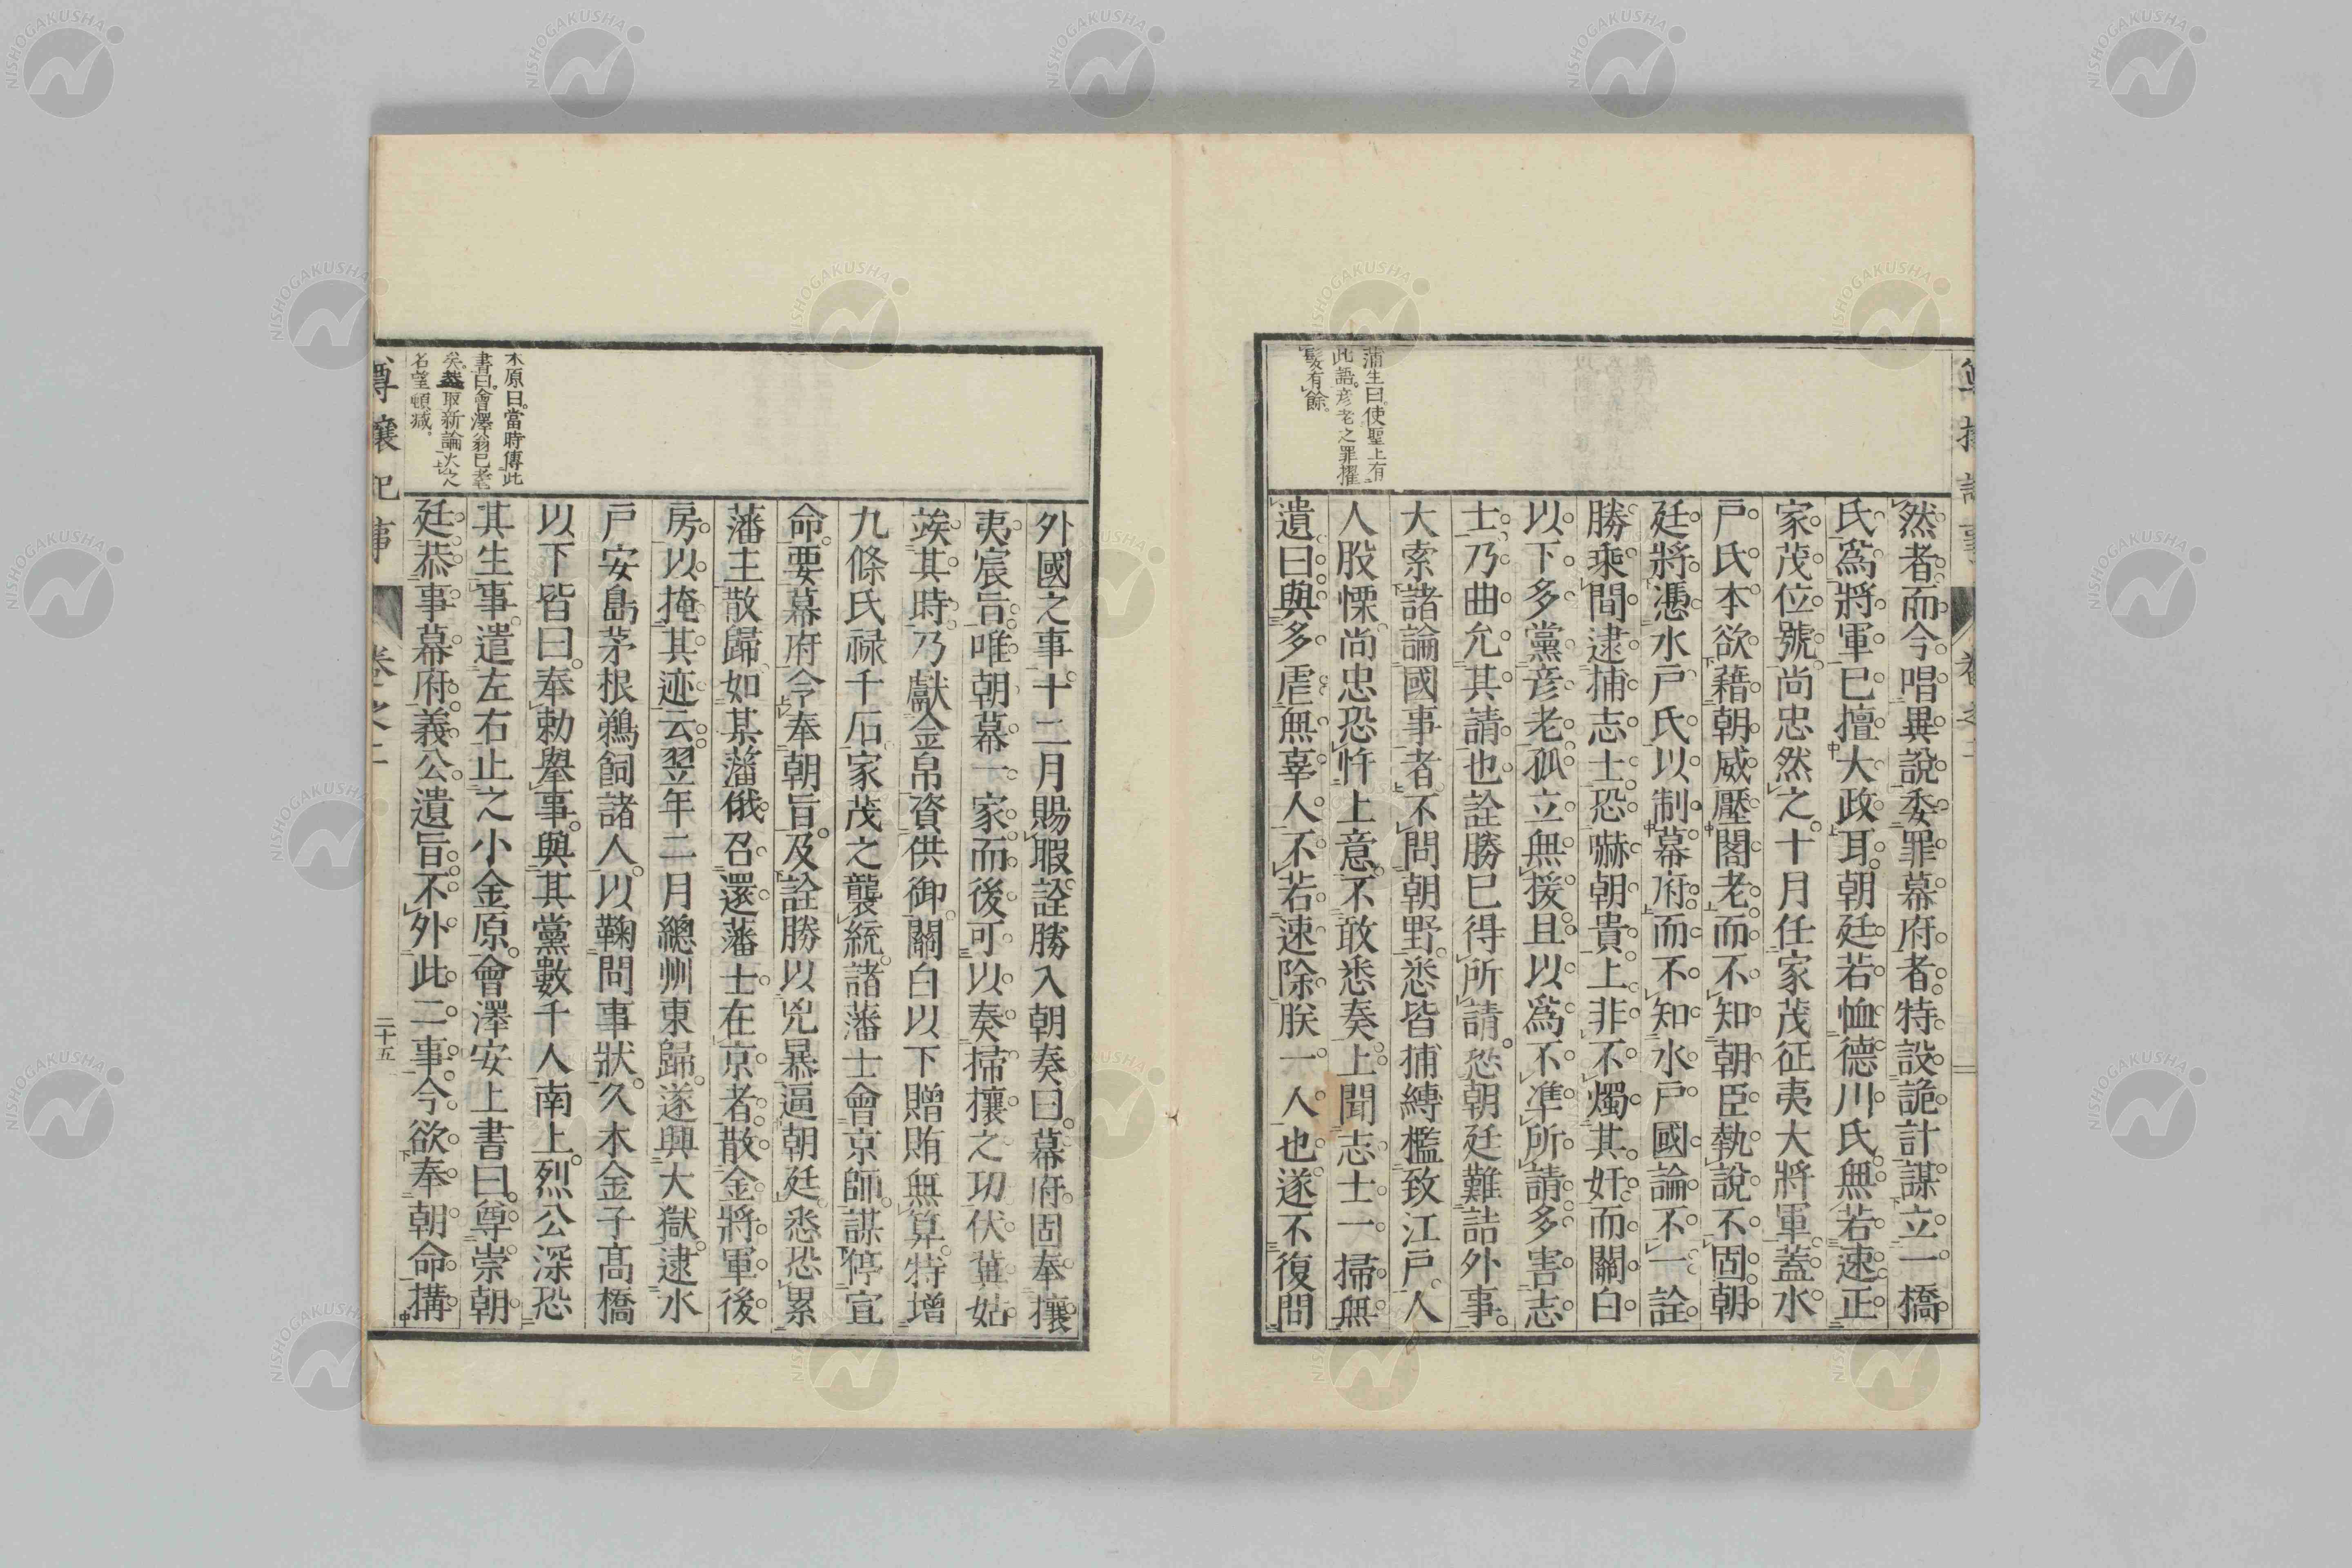 蒲生曰。使聖上有
此語。彦老之罪擢
髮有餘。
然者。而今唱異說委罪幕府者。特設詭計謀立一橋
氏爲將軍已擅大政耳。朝廷若恤德川氏無若速正
家茂位號。尚忠然之。十月任家茂征夷大將軍。蓋水
戸氏本欲藉朝威壓閣老。而不知朝臣執說不固。朝
廷將憑水戸氏以制幕府。而不知水戸國論不一。詮
勝乘間逮捕志士。恐嚇朝貴上。非不燭其奸。而關白
以下多黨彦老。孤立無援。且以爲不準所請多害志
士。乃曲允其請也。詮勝已得所請。恐朝廷難詰外事。
大索諸論國事者。不問朝野。悉皆捕縛檻致江戸。人
人股慄。尚忠恐忤上意。不敢悉奏。上聞志士一掃無
遺曰。與多虐無辜人。不若速除朕一人也。遂不復問
外國之事。十二月賜暇。詮勝入朝奏曰。幕府固奉攘
夷宸旨。唯朝幕一家。而後可以奏掃攘之功。伏冀姑
竢其時。乃獻金帛資供御。關白以下贈賄無算。特增
九條氏祿千石。家茂之襲統。諸藩士會京師。謀停宣
命。要幕府令奉朝旨。及詮勝以兇暴逼朝廷。悉恐累
藩主散歸。如某藩俄召還藩士在京者。散金將軍後
房。以掩其迹云。翌年二月總州東歸。遂興大獄。逮水
戸安島茅根鵜飼諸人。以鞠問事狀。久木金子高橋
以下皆曰。奉勅舉事。與其黨數千人南上。烈公深恐
其生事。遣左右止之小金原。會澤安上書曰。尊崇朝
廷。恭事幕府。義公遺旨。不外此二事。今欲奉朝命搆
木原曰。當時傳此
書曰。會澤翁已耄
矣。蓋取新論火之
名望頓減。
尊攘記事
卷之二
二十五